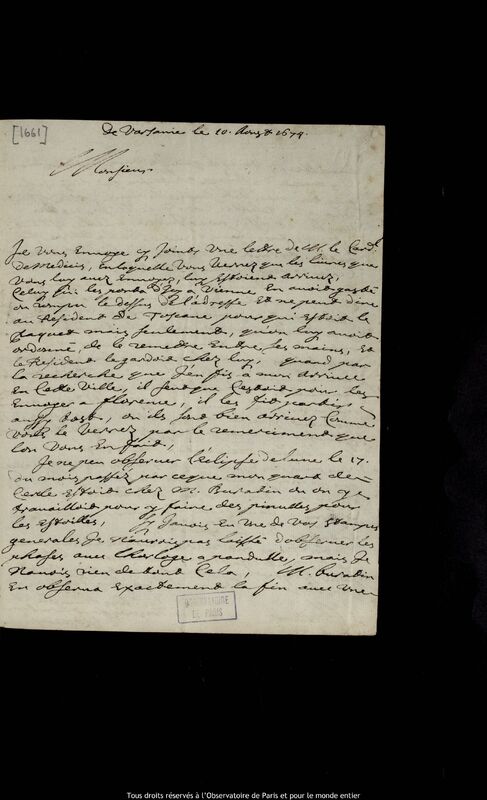 [1661]
De Varsavie le 10. Aoust 1674.
Monsieur
Je vous Envoye cy Joints une lettre de M. le Card.l
de Medicis, en laquelle vous verrez que les livres que
vous luy avez Envoyez, luy Estoient arrivez,
Celuy qui les porta d'icy a Vienne, En avoit gasté
ou rompu le dessus de l'adresse Et ne peut dire
au Resident de Toscane pour qui Estoit le
pacquet mais seulement, qu'on luy avoit
ordonné, de le remettre Entre ses mains, et
le Resident le gardoit chez luy, quand par
la recherche que J'en fis a mon arrivée
En Cette Ville, il sceut que C'estoit pour les
Envoyer a florence, il les fit partir
aussy tost, ou ils sont bien arrivez Comme
vous le verrez par le remerciment que
l'on vous En fait,
Je ne peu observer l'Eclipse de lune le 17.
du mois passé par ce que mon quart de
Cercle Estoit chez M. Buratin ou on y
travailloit pour y faire des pinnules pour
les Estoilles, Si J'avois eu une de vos Estampes
generales Je n'aurois pas laissé d'observer les
phases avec l'horloge a pendulle, mais Je
n'avois rien de tout Cela, M. Buratin
En observa Exactement la fin avec une
OBSERVATOIRE
DE PARIS
Tous droits réservés à l'Observatoire de Paris et pour le monde entier